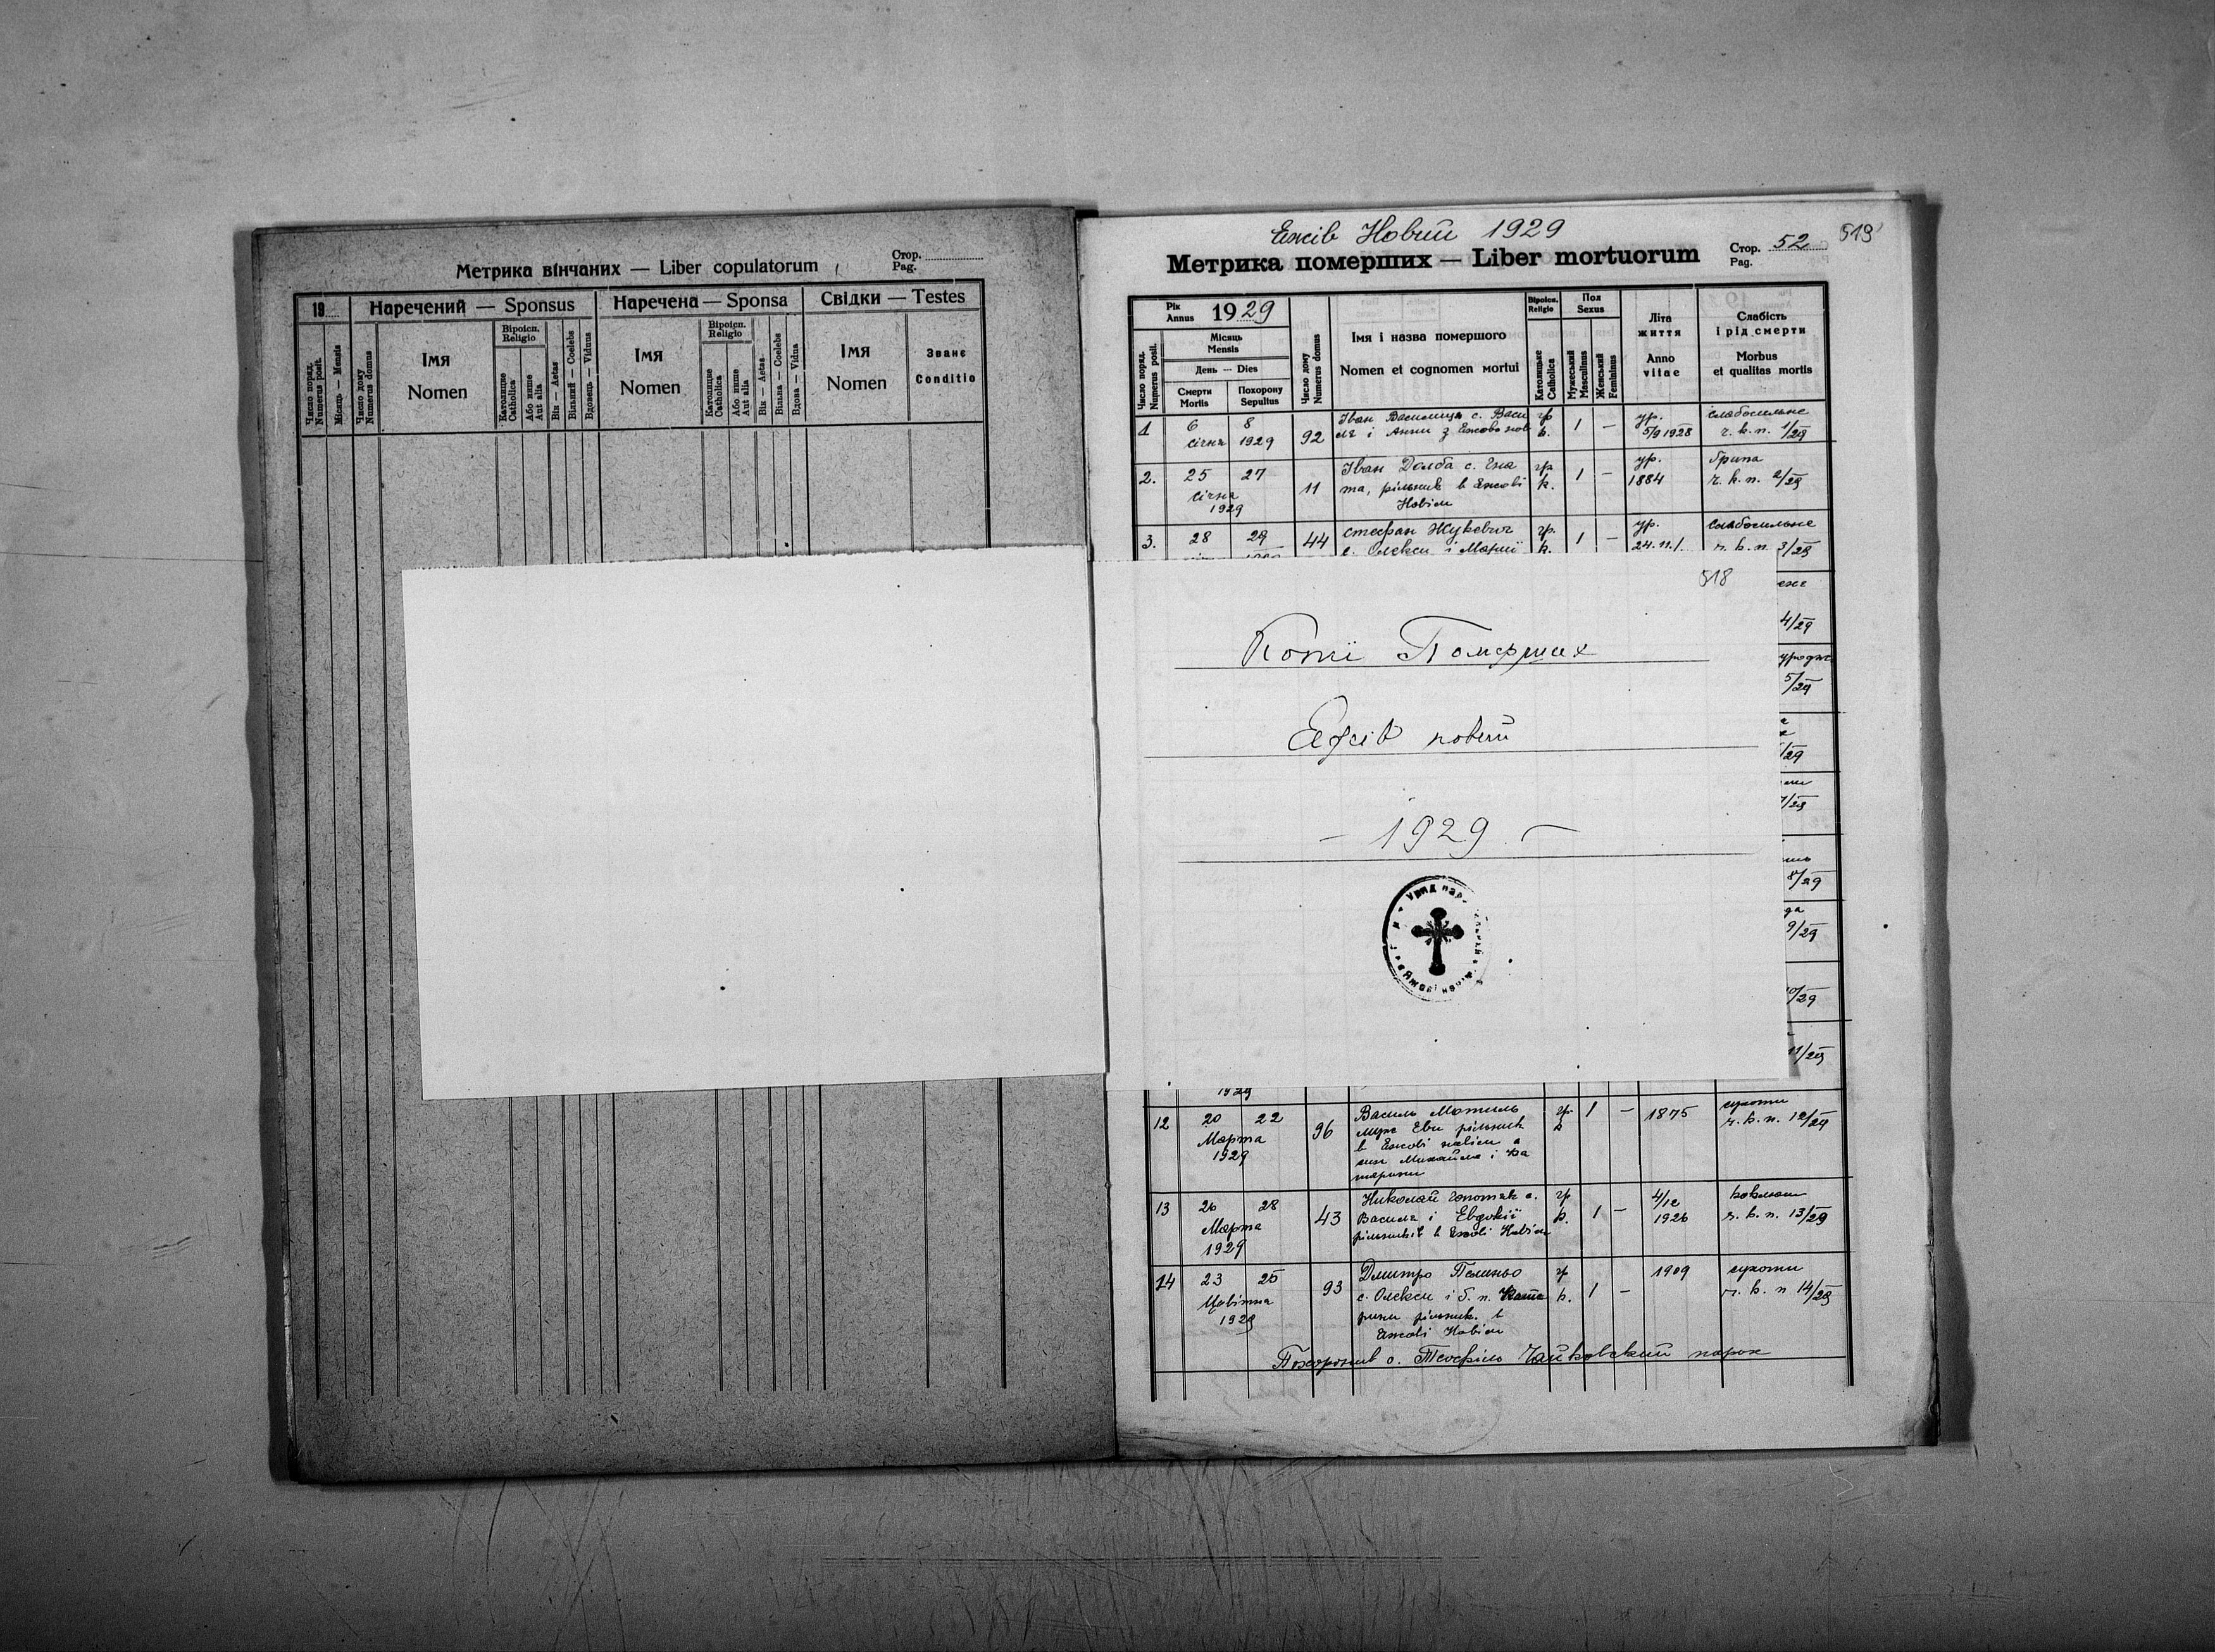 Метрика вінчаних — Liber copulatorum
Стор.
Pag.
19
Наречений — Sponsus
Наречена — Sponsa
Свідки — Testes
Число поряд.
Numerus posit.
Місяць — Mensis
Число дому
Numerus domus
Імя
Nomen
Віроісп.
Religio
Католицке
Catholica
Або инше
Aut alia
Вік — Aetas
Вільний — Coelebs
Вдовець — Viduus
Імя
Nomen
Віроісп.
Religio
Католицке
Catholica
Або инше
Aut alia
Вік — Aetas
Вільна — Coelebs
Вдова — Vidua
Імя
Nomen
Званє
Conditio
Ежів Новий 1929
Метрика померших — Liber mortuorum
Стор. 52
Pag.
519
Рік
Annus 1929
Місяць
Mensis
День — Dies
Смерти
Mortis
Похорону
Sepultus
Число поряд.
Numerus posit.
Число дому
Numerus domus
Імя і назва помершого
Nomen et cognomen mortui
Віроісп.
Religio
Католицьке
Catholica
Пол
Sexus
Мужеський
Masculinus
Женський
Femininus
Літа
життя
Anno
vitae
Слабість
і рід смерти
Morbus
et qualitas mortis
1 6 8 92 Іван с. Васи гр 1 — ур. слабосильне
січня 1929 ля і Анни з к. 5/9 1928 г. к. п. 1/29
2. 25 27 11 Іван Долба с. Гна гр 1 — ур. грипа
січня та, рільник в Ежові к. 1884 г. к. п. 2/29
1929 Новім
3. 28 29 44 Стефан Жукович гр. 1 — ур. слабосильне
с. Олекси і Марії к. 24.11.1. г. к. п. 3/29
518
4/29
Копії Померших
5/29
Ежів новий
/29
7/29
— 1929. —
8/29
9/29
Уряд пар
10/29
11/29
1929
12 20 22 96 Василь Мотиль гр. 1 — 1875 сухоти
Марта муж Еви рільник к г. к. п. 12/29
1929 в Ежові новім а
син Михайла і Ка
тарини
13 26 28 43 Николай с. гр 1 — 4/12 коклюш
Марта Василя і Евдокії к. 1926 г. к. п. 13/29
1929 рільників в Ежові Новім
14 23 25 93 Дмитро гр 1 — 1909 сухоти
Цвітня с. Олекси і б. п. Кате к. г. к. п 14/29
1929 рини рільник. в
Ежові Новім
Похоронив о. Теофіль Чайковский парох